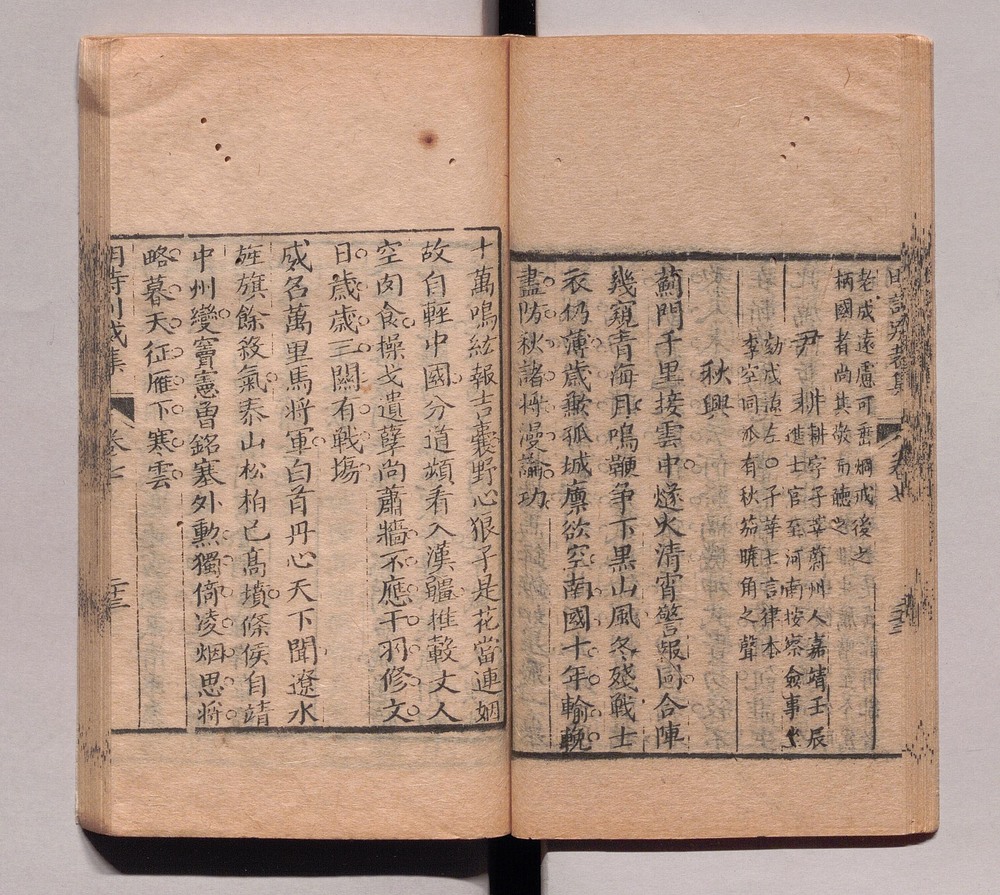 老成遠慮可垂炯戒後之
柄國者尚其敬而聽之
尹耕
耕字子莘蔚州人嘉靖壬辰
進士官至河南按察僉事坐
劾戍遼左○子莘七言律本
李空同亦有秋笳曉角之聲
秋興
薊門千里接雲中燧火清宵警報同合陣
幾窺青海月鳴鞭爭下黑山風冬殘戰士
衣仍薄歲歉孤城廩欲空南國十年輸輓
盡防秋諸將漫論功
卷七
十萬鳴絃報吉囊野心狼子是花當連姻
故自輕中國分道頻看入漢疆推轂丈人
空肉食操戈遺孽尚蕭牆不應干羽修文
日歲歲三關有戰場
威名萬里馬將軍白首丹心天下聞遼水
旌旗餘殺氣泰山松柏已高墳條侯自靖
中州變竇憲曾銘塞外勳獨倚凌烟思將
略暮天征雁下寒雲
明詩別裁集 卷七 二十三